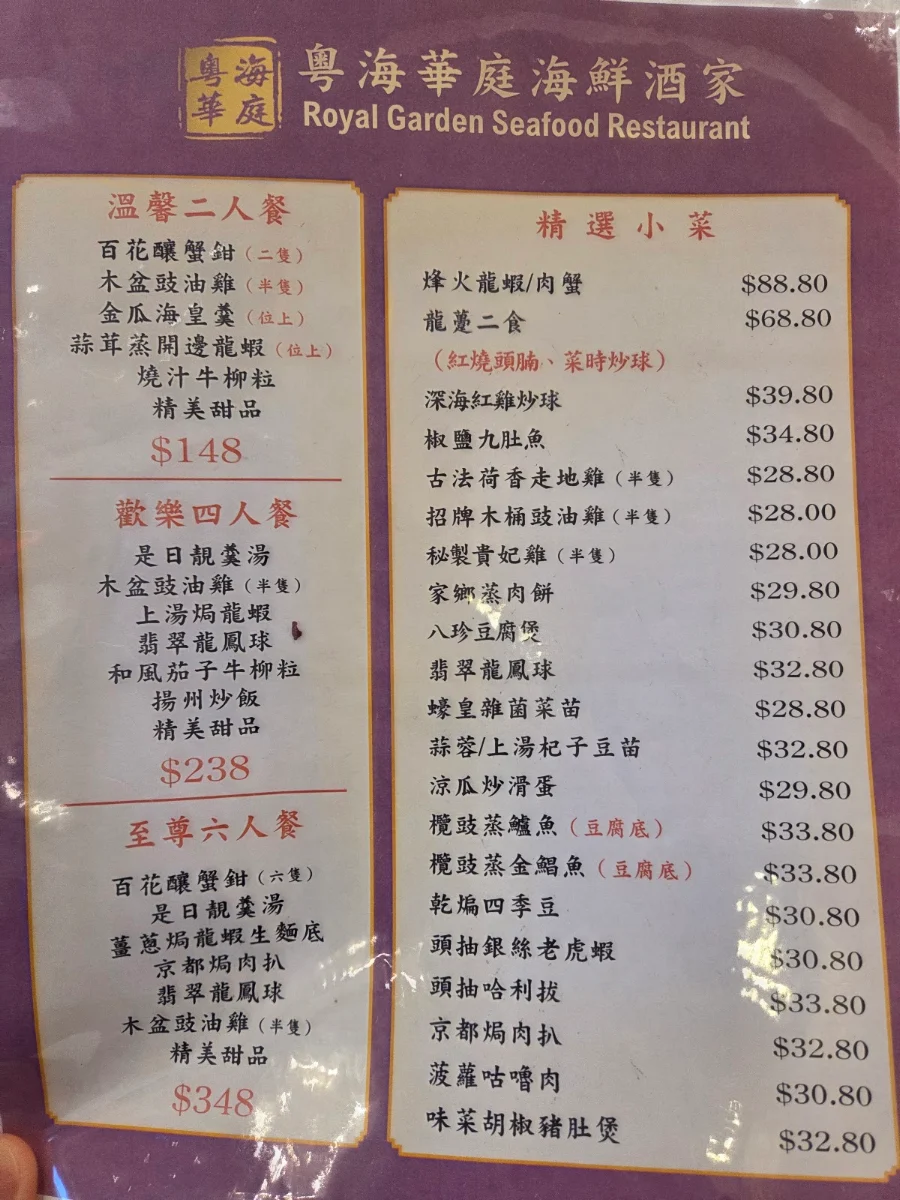 粵海華庭
粵海華庭海鮮酒家
Royal Garden Seafood Restaurant
溫馨二人餐
百花釀蟹鉗（二隻）
木盆豉油雞（半隻）
金瓜海皇羹（位上）
蒜茸蒸開邊龍蝦（位上）
燒汁牛柳粒
精美甜品
$148
歡樂四人餐
是日靚羹湯
木盆豉油雞（半隻）
上湯焗龍蝦
翡翠龍鳳球
和風茄子牛柳粒
揚州炒飯
精美甜品
$238
至尊六人餐
百花釀蟹鉗（六隻）
是日靚羹湯
薑蔥焗龍蝦生麵底
京都焗肉扒
翡翠龍鳳球
木盆豉油雞（半隻）
精美甜品
$348
精選小菜
烽火龍蝦/肉蟹 $88.80
龍躉二食 $68.80
（紅燒頭腩、菜時炒球）
深海紅雞炒球 $39.80
椒鹽九肚魚 $34.80
古法荷香走地雞（半隻） $28.80
招牌木桶豉油雞（半隻） $28.00
秘製貴妃雞（半隻） $28.00
家鄉蒸肉餅 $29.80
八珍豆腐煲 $30.80
翡翠龍鳳球 $32.80
蠔皇雜菌菜苗 $28.80
蒜蓉/上湯杞子豆苗 $32.80
涼瓜炒滑蛋 $29.80
欖豉蒸鱸魚（豆腐底） $33.80
欖豉蒸金鯧魚（豆腐底） $33.80
乾煸四季豆 $30.80
頭抽銀絲老虎蝦 $30.80
頭抽哈利拔 $33.80
京都焗肉扒 $32.80
菠蘿咕嚕肉 $30.80
味菜胡椒豬肚煲 $32.80